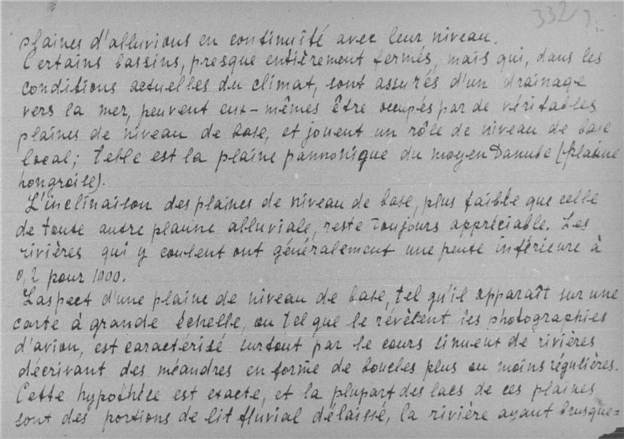 332
plaines d'alluvions en continuité avec leur niveau.
Certains bassins, presque entièrement fermés, mais qui, dans les
conditions actuelles du climat, sont assurés d'un drainage
vers la mer, peuvent eux-mêmes être occupés par de véritables
plaines de niveau de base, et jouent un rôle de niveau de base
local; telle est la plaine pannonique du moyen Danube (plaine
hongroise).
L'inclinaison des plaines de niveau de base, plus faible que celle
de toute autre plaune alluviale, reste toujours appréciable. Les
rivières qui y coulent ont généralement une pente inférieure à
0,2 pour 1000.
L'aspect d'une plaine de niveau de base, tel qu'il apparaît sur une
carte à grande échelle, ou tel que le révèlent les photographies
d'avion, est caractérisé surtout par le cours sinueut de rivières
décrivant des méandres en forme de boucles plus ou moins régulières.
Cette hypothèse est exacte, et la plupart des lacs de ces plaines
sont des portions de lit fluvial délaissé, la rivière ayant brusque=